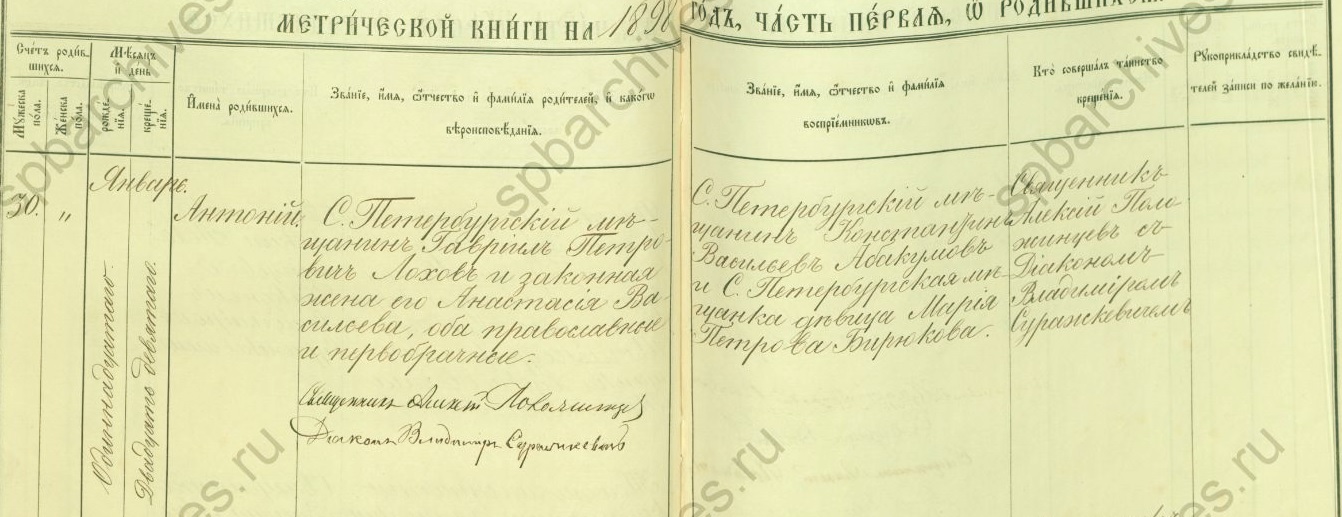 МЕТРИ́ЧЕСКОЙ КНИ́ГИ НА 189
ГО́ДЪ, ЧА́СТЬ ПЕ́РВАЯ, Ѿ РОДИ́ВШИХСЯ
Сче́тъ роди́в-
шихся.
Мꙋ́жеска
по́ла.
Же́нска
по́ла.
Мѣ́сяцъ
и҆ де́нь
рожде́-
нія.
креще́-
нія.
И҆мена̀ роди́вшихся.
Зва́ніе, и҆́мя, ѻ҆́тчество и҆ фами́лія роди́телей, и҆ како́гѡ
вѣроисповѣ́данія.
Зва́ніе, и҆́мя, ѻ҆́тчество и҆ фами́лія
воспрїе́мникѡвъ.
Кто̀ соверша́лъ та́инство
креще́нія.
Рꙋкоприкла́дство свидѣ́-
телей за́писи по жела́нію.
Январь.
30.
"
Одиннадцатаго.
Двадцать девятаго.
Антоній.
С. Петербургскій мѣ-
щанинъ Гавріилъ Петро-
вичъ Лоховъ и законная
жена его Анастасія Ва-
сильева, оба православные
и первобрачные.
Священникъ Алексѣй
Діаконъ Владиміръ Суражкевичъ
С. Петербургскій мѣ-
щанинъ Константинъ
Васильевъ Абакумовъ
и С. Петербургская мѣ-
щанка дѣвица Марія
Петрова Бирюкова.
Священникъ
Алексій Поло-
жинцевъ съ
Діакономъ
Владиміромъ
Суражкевичемъ
spbarchives
spbarchives
spbarchives
ves.ru
ves.ru
ves.ru